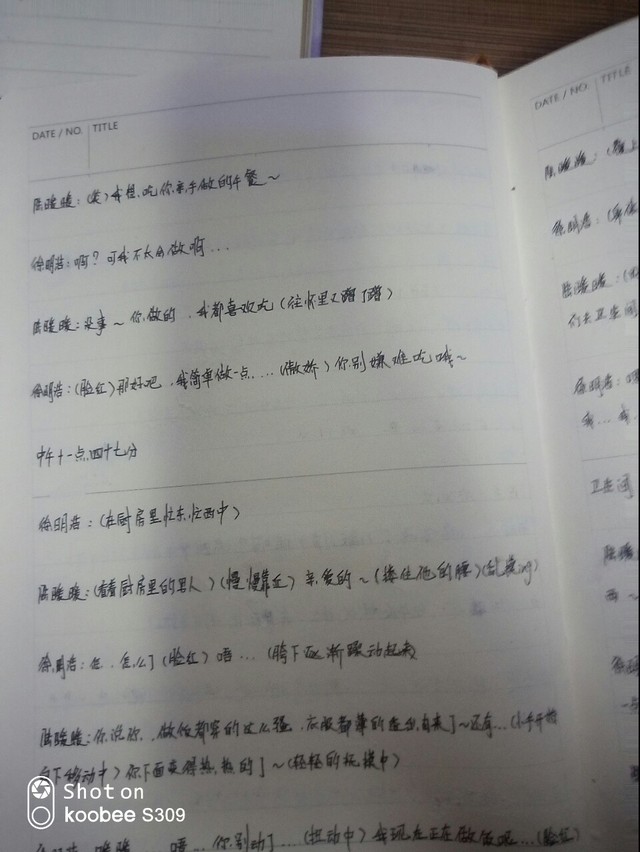 DATE / NO. TITLE
陆暖暖：(笑) 我想吃你亲手做的午餐～
徐明浩：啊？可我不太会做啊...
陆暖暖：没事～你做的，我都喜欢吃 (往怀里又蹭了蹭)
徐明浩：(脸红) 那好吧，我简单做一点....(傲娇) 你别嫌难吃哦～
中午十一点四十七分
徐明浩：(在厨房里忙东忙西中)
陆暖暖：(看着厨房里的男人) (慢慢靠近) 亲爱的～ (搂住他的腰) (乱摸ing)
徐明浩：怎、怎么了 (脸红) 唔... (胯下逐渐
陆暖暖：你说你，做饭都穿的这么骚，衣服都
向下移动中) 你下面变得热热的了～ (轻轻的抚摸中)
唔... 你别动了....(扭动中) 我现在正在做饭呢... (脸红)
DATE / NO. TITLE
陆暖暖：
徐明浩：
陆暖暖：
们去卫生间
徐明浩：
我...我
卫生间
陆暖
西～
Shot on
koobee S309